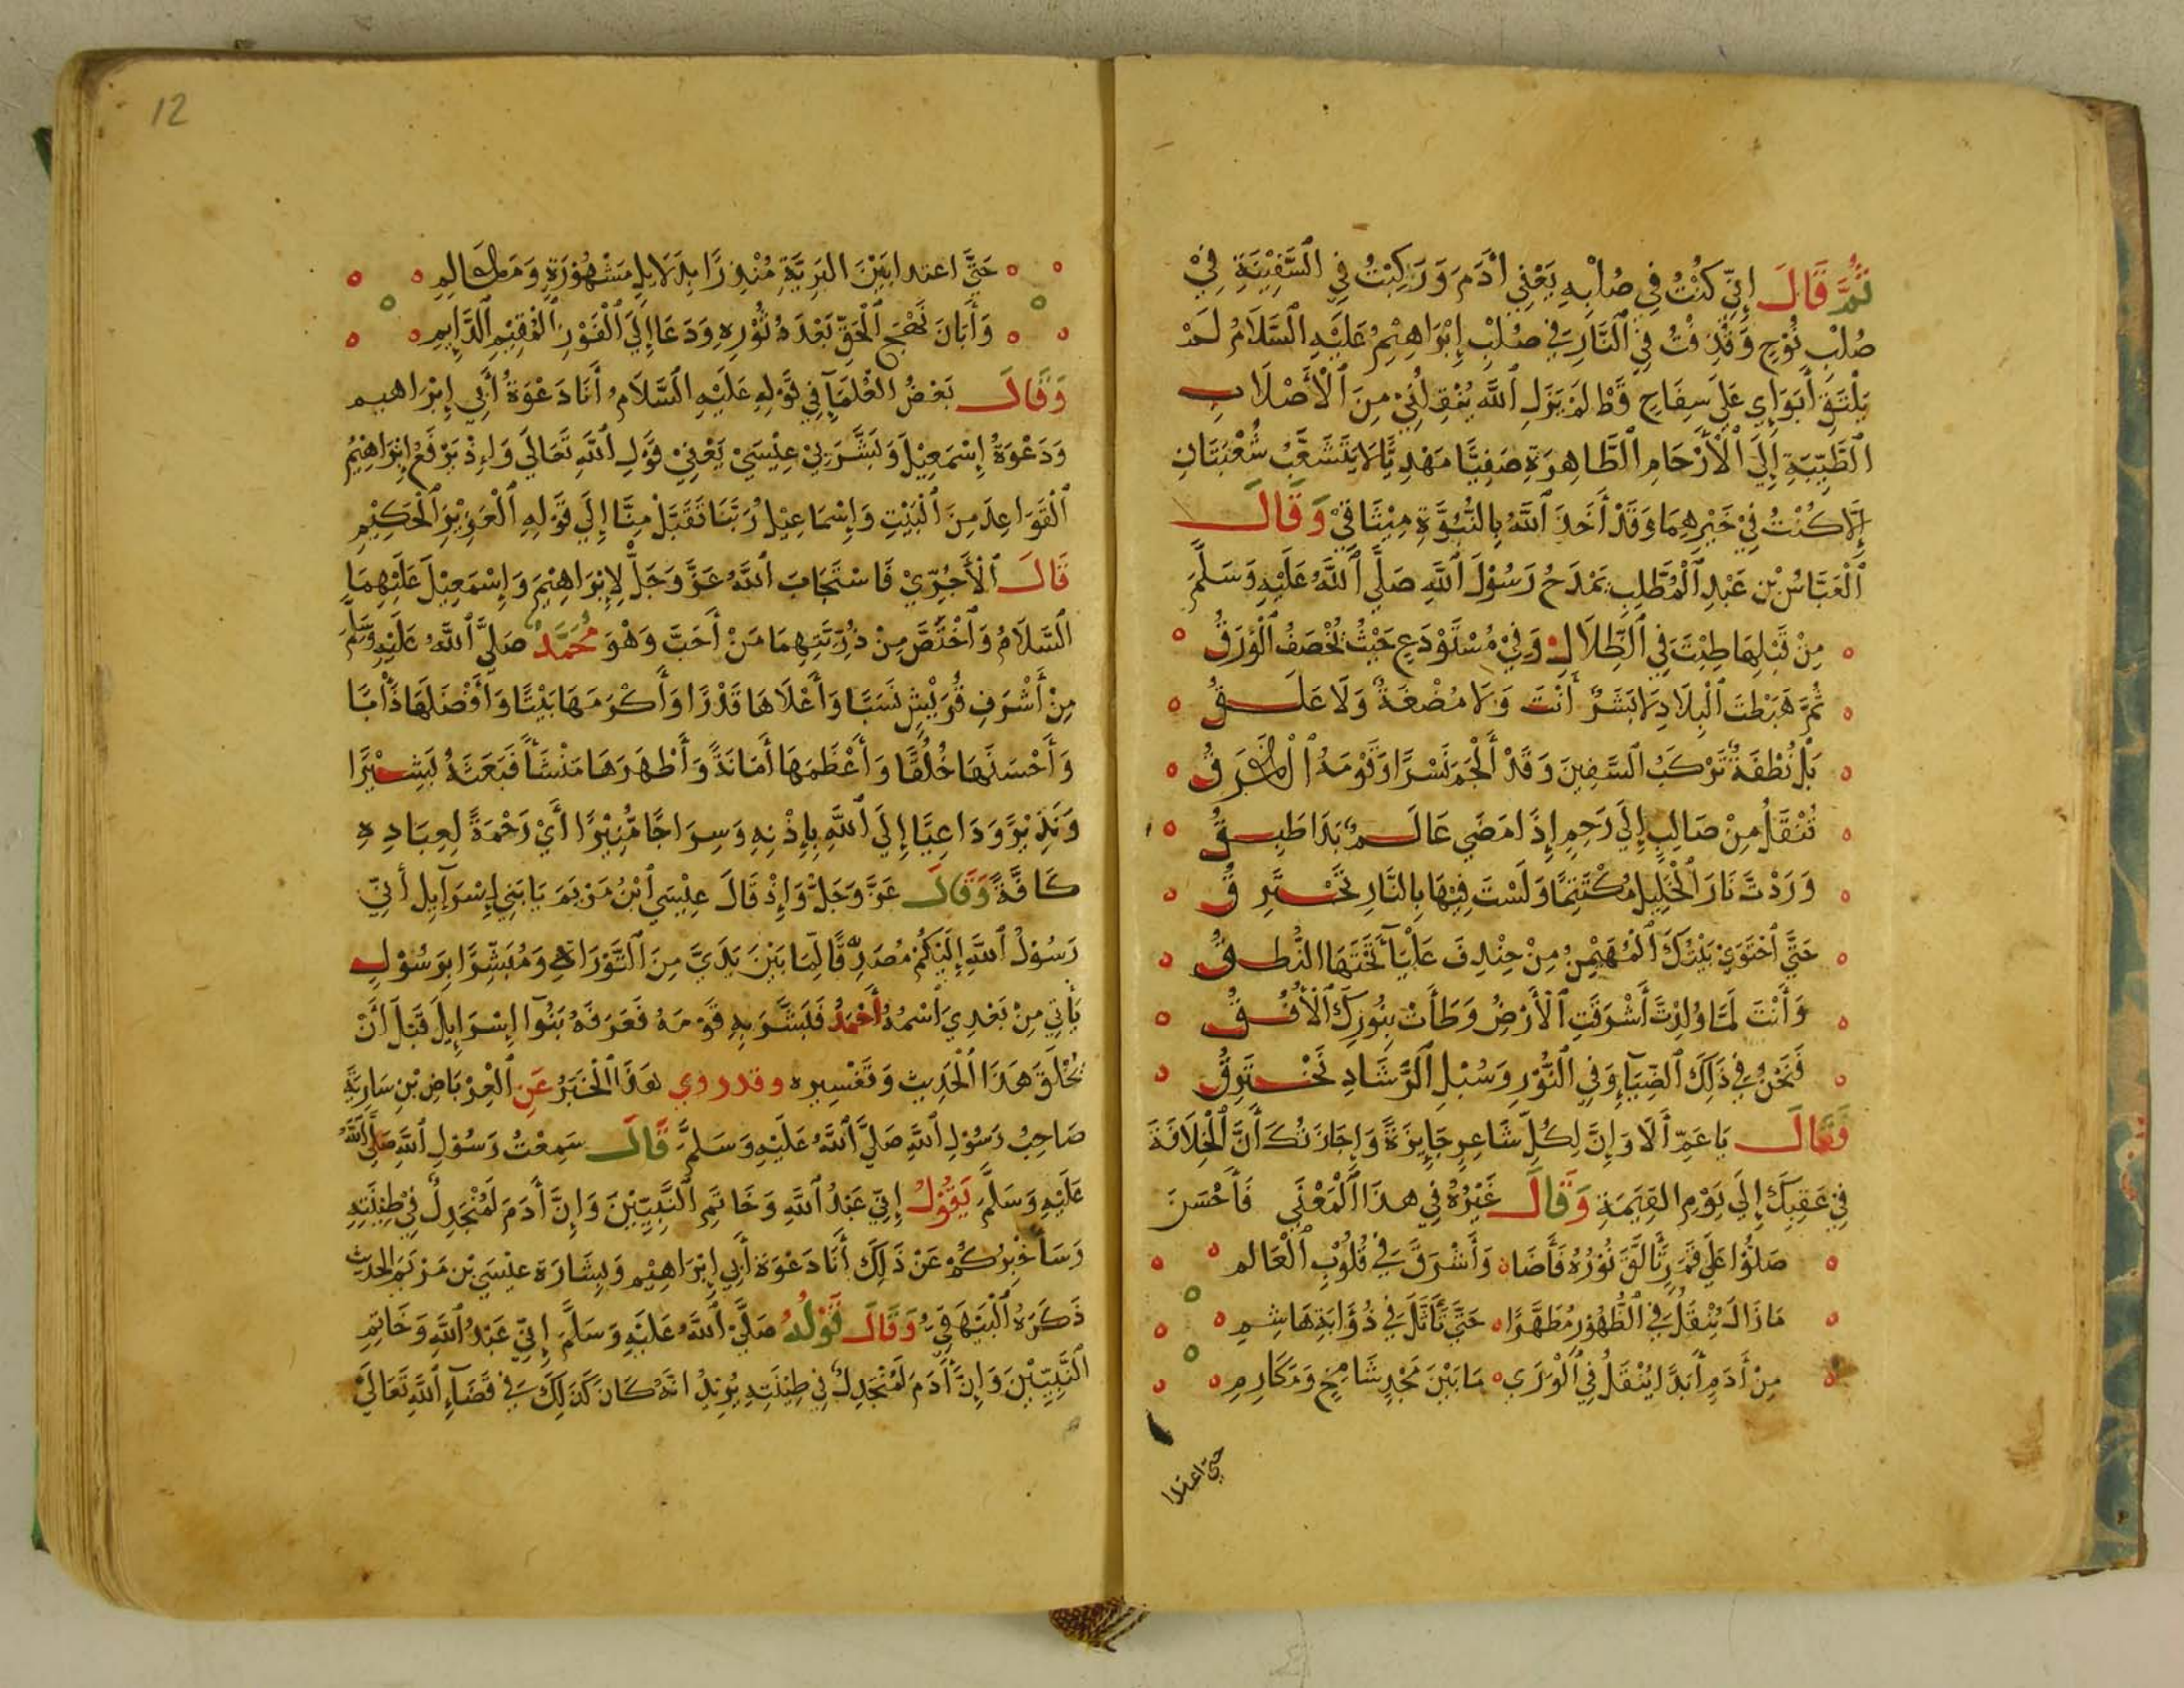 ثُمَّ قَالَ إِنِّي كُنْتُ فِي صُلْبِهِ يَعْنِي اٰدَمَ وَرَكِبْتُ فِي السَّفِيْنَةِ فِيْ
صُلْبِ نُوْحٍ وَقُذِفْتُ فِي النَّارِ فِي صُلْبِ إِبْرَاهِيْمَ عَلَيْهِ السَّلَامُ لَمْ
يَلْتَقِ أَبَوَايَ عَلَى سِفَاحٍ قَطْ لَمْ يَزَلِ اللَّهُ يَنْقِلُنِيْ مِنَ الْأَصْلَابِ
الطَّيِّبَةِ إِلَى الْأَرْحَامِ الطَّاهِرَةِ صَفِيًّا مَهْدِيًّا لَا يَتَشَعَّبُ شُعْبَتَانِ
إِلَّا كُنْتُ فِيْ خَيْرِهِمَا وَقَدْ أَخَذَ اللَّهُ بِالنُّبُوَّةِ مِيْثَاقِيْ وَقَالَ
الْعَبَّاسُ بْنِ عَبْدِ الْمُطَّلِبِ يَمْدَحُ رَسُوْلَ اللَّهِ صَلَّى اللَّهُ عَلَيْهِ وَسَلَّمَ
مِنْ قَبْلِهَا طِبْتَ فِي الظِّلَالِ وَفِيْ مُسْتَوْدَعٍ حَيْثُ يُخْصَفُ الْوَرَقُ
ثُمَّ هَبَطْتَ الْبِلَادَ لَا بَشَرٌ أَنْتَ وَلَا مُضْغَةٌ وَلَا عَلَقُ
بَلْ نُطْفَةٌ تَرْكَبُ السَّفِينَ وَقَدْ أَلْجَمَ نَسْرًا وَقَوْمَهُ الْغَرَقُ
تُنْقَلُ مِنْ صَالِبٍ إِلَى رَحِمٍ إِذَا مَضَى عَالَمٌ بَدَا طَبِقُ
وَرَدْتَ نَارَ الْخَلِيْلِ مُكْتَتِمًا وَلَسْتَ فِيْهَا بِالنَّارِ تَحْتَرِقُ
حَتَّى احْتَوَى بَيْتُكَ الْمُهَيْمِنُ مِنْ خِنْدِفَ عَلْيَآءَ تَحْتَهَا النُّطُقُ
وَأَنْتَ لَمَّا وُلِدْتَّ أَشْرَقَتِ الْأَرْضُ وَطَأَتْ بِنُورِكَ الْأُفُقُ
فَنَحْنُ فِي ذَلِكَ الضِّيَآءِ وَفِي النُّوْرِ وَسُبْلِ الرَّشَادِ نَخْتَرِقُ
فَقَالَ يَا عَمِّ أَلَا وَإِنَّ لِكُلِّ شَاعِرٍ جَايِزَةً وَإِجَازَتُكَ أَنَّ الْخِلَافَةَ
فِيْ عَقِبِكَ إِلَى يَوْمِ الْقِيَمَةِ وَقَالَ غَيْرُهُ فِي هذَا الْمَعْنَى فَأَحْسَنَ
صَلُّوْا عَلَى قَمَرٍ تَأَلَّقَ نُوْرُهُ فَأَضَا وَأَشْرَقَ فِي قُلُوْبِ الْعَالَم
مَا زَالَ يُنْقَلُ فِي الظُّهُوْرِ مُطَهَّرًا حَتَّى تَأَثَّلَ فِي ذُؤَابَةِ هَاشِمِ
مِنْ أَدَمٍ أَبَدًا يُنْقَلُ فِي الْوَرَى مَا بَيْنَ مَجْدٍ شَامِخٍ وَمَكَارِمِ
حتي اعتدا
12
حَتَّى اعتدا بَيْنَ الْبَرِيَّةِ مُنْذِرًا بِدَلَايِلٍ مَشْهُوْرَةٍ وَمَعَالِمِ
وَأَبَانَ نَهْجَ الْحَقِّ بَعْدَ دُثُوْرِهِ وَدَعَا إِلَى الْفَوْزِ الْمُقِيْمِ الدَّايِمِ
وَقَالَ بَعْضُ الْعُلَمَآءِ فِي قَوْلِهِ عَلَيْهِ السَّلَامُ أَنَا دَعْوَةُ أَبِي إِبْرَاهيم
وَدَعْوَةُ إِسْمَعِيْلَ وَبَشَّرَ بِيْ عِيْسَىْ يَعْنِيْ قَوْلِ اللَّهِ تَعَالَى وَإِذْ يَرْفَعُ إِبْرَاهِيْمُ
الْقَوَاعِدَ مِنَ الْبَيْتِ وَإِسْمَاعِيْلُ رَبَّنَا تَقَبَّلْ مِنَّا إِلَى قَوْلِهِ الْعَزِيْزِ الْحَكِيْمِ
قَالَ الْأَجُرِّيْ فَاسْتَجَابَ اللَّهُ عَزَّ وَجَلَّ لِإِبْرَاهِيْمَ وَإِسْمَعِيْلَ عَلَيْهِمَا
السَّلَامُ وَاخْتَصَّ مِنْ ذُرِّيَّتِهِمَا مَنْ أَحَبَّ وَهْوَ مُحَمَّدٌ صَلَّى اللَّهُ عَلَيْهِ وَسَلَّمَ
مِنْ أَشْرَفِ قُرَيْشٍ نَسَبًا وَأَعْلَاهَا قَدْرًا وَأَكْرَمَهَا بَيْتًا وَأَفْضَلَهَا ذَاتًا
وَأَحْسَنَهَا خُلُقًا وَأَعْظَمَهَا أَمَانَةً وَأَطْهَرَهَا مَنْشَأً فَبَعَثَهُ بَشِيْرًا
وَنَذِيْرً وَدَاعِيًا إِلَى اللَّهِ بِإِذْنِهِ وَسِرَاجًا مُّنِيْرًا أَيْ رَحْمَةً لِعِبَادِهِ
كَافَّةً وَقَالَ عَزَّ وَجَلَّ وَإِذْ قَالَ عِيْسَى ابْنُ مَرْيَمَ يَا بَنِي إِسْرَآيِل أَنِيّ
رَسُوْلُ اللَّهِ إِلَيْكُمْ مُصَدِّقًا لِّمَا بَيْنَ يَدَيَّ مِنَ التَّوْرَاةِ وَمُبَشِّرًا بِرَسُوْلٍ
يَأْتِي مِنْ بَعْدِيَ اسْمُهُ أَحْمَدُ فَبَشَّرَ بِهِ قَوْمَهُ فَعَرَفَهُ بَنُوْا إِسْرَإِيلَ قَبْلَ أَنْ
يُخْلَقَ هَذَا الْحَدِيث وَتَفْسِيره وقد روي هَذَا الْخَبَرُ عَنِ الْعِرْبَاضِ بْنِ سَارِيَةَ
صَاحِبُ رَسُوْلِ اللَّهِ صَلَّى اللَّهُ عَلَيْهِ وَسَلَّمَ قَالَ سَمِعْتُ رَسُوْلِ اللَّهِ صَلَّى اللَّهُ
عَلَيْهِ وَسَلَّمَ يَقُوْلُ إِنِّي عَبْدُ اللَّهِ وَخَاتَمِ النَّبِيِّيْنَ وَإِنَّ أَدَمَ لَمُنْجَدِلٌ فِيْ طِيْنَتِهِ
وَسَأُخْبِرُكُمْ عَنْ ذَلِكَ أَنَا دَعْوَةُ أَبِي إِبْرَاهِيْم وَبِشَارَة عيْسَى بْن مَرْيَمَ الحديث
ذَكَرَهُ الْبَيْهَقِيُّ وَقَالَ قَوْلُهُ صَلَّى اللَّهُ عَلَيْهِ وَسَلَّمَ إِنِّي عَبْدُ اللَّهِ وَخَاتِمِ
النَّبِيِّيْنَ وَإِنَّ أَدَمَ لَمُنْجَدِلٌ فِي طِيْنَتِهِ يُرِيْدُ انَّهُ كَانَ كَذَلِكَ فِي قَضَآءِ اللَّهِ تَعَالَىْ